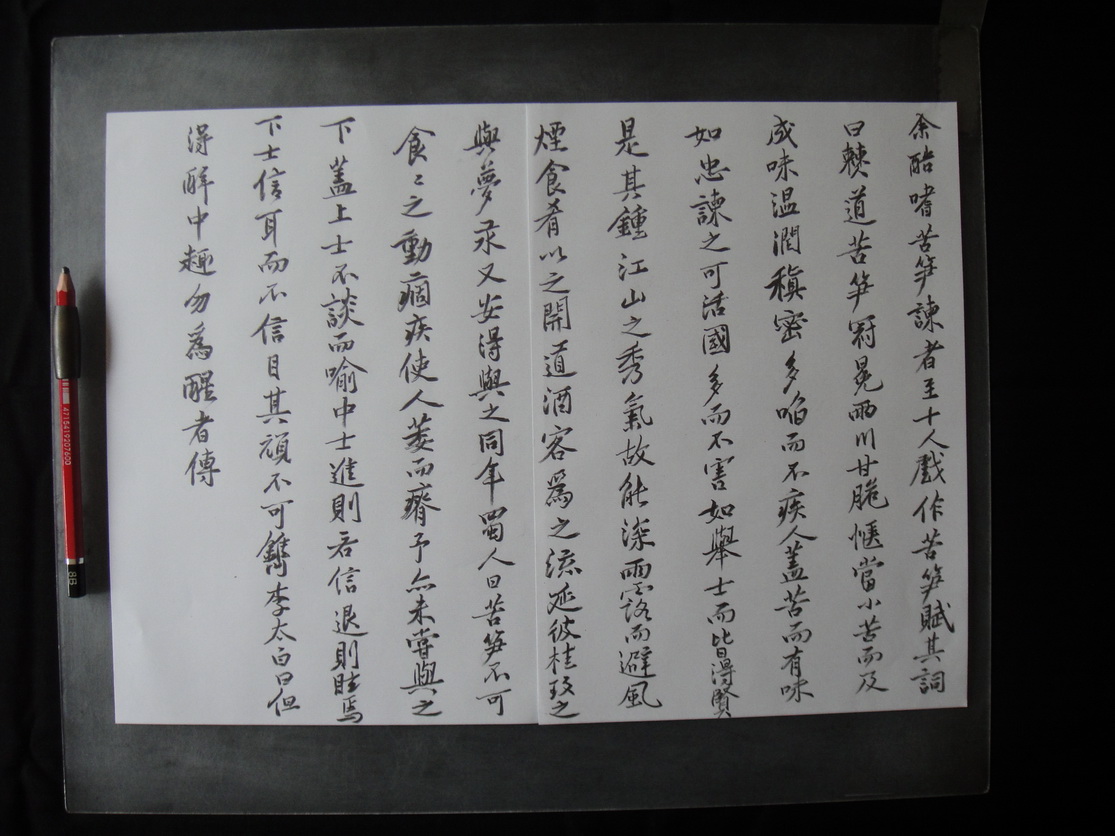 余酷嗜苦筍諫者至十人戲作苦笋賦其詞
曰僰道苦笋冠冕兩川甘脆愜當小苦而及
成味温潤稹密多啗而不疾人蓋苦而有味
如忠諫之可活國多而不害如舉士而皆得賢
是其鍾江山之秀氣故能深雨露而避風
煙食肴以之開道酒客為之流涎彼桂玫之
與夢永又安得與之同年蜀人曰苦笋不可
食〻之動痼疾使人萎而瘠予亦未嘗與之
下蓋上士不談而喻中士進則若信退則眩焉
下士信耳而不信目其頑不可鐫李太白曰但
得醉中趣勿為醒者傳
4715419207600
8B